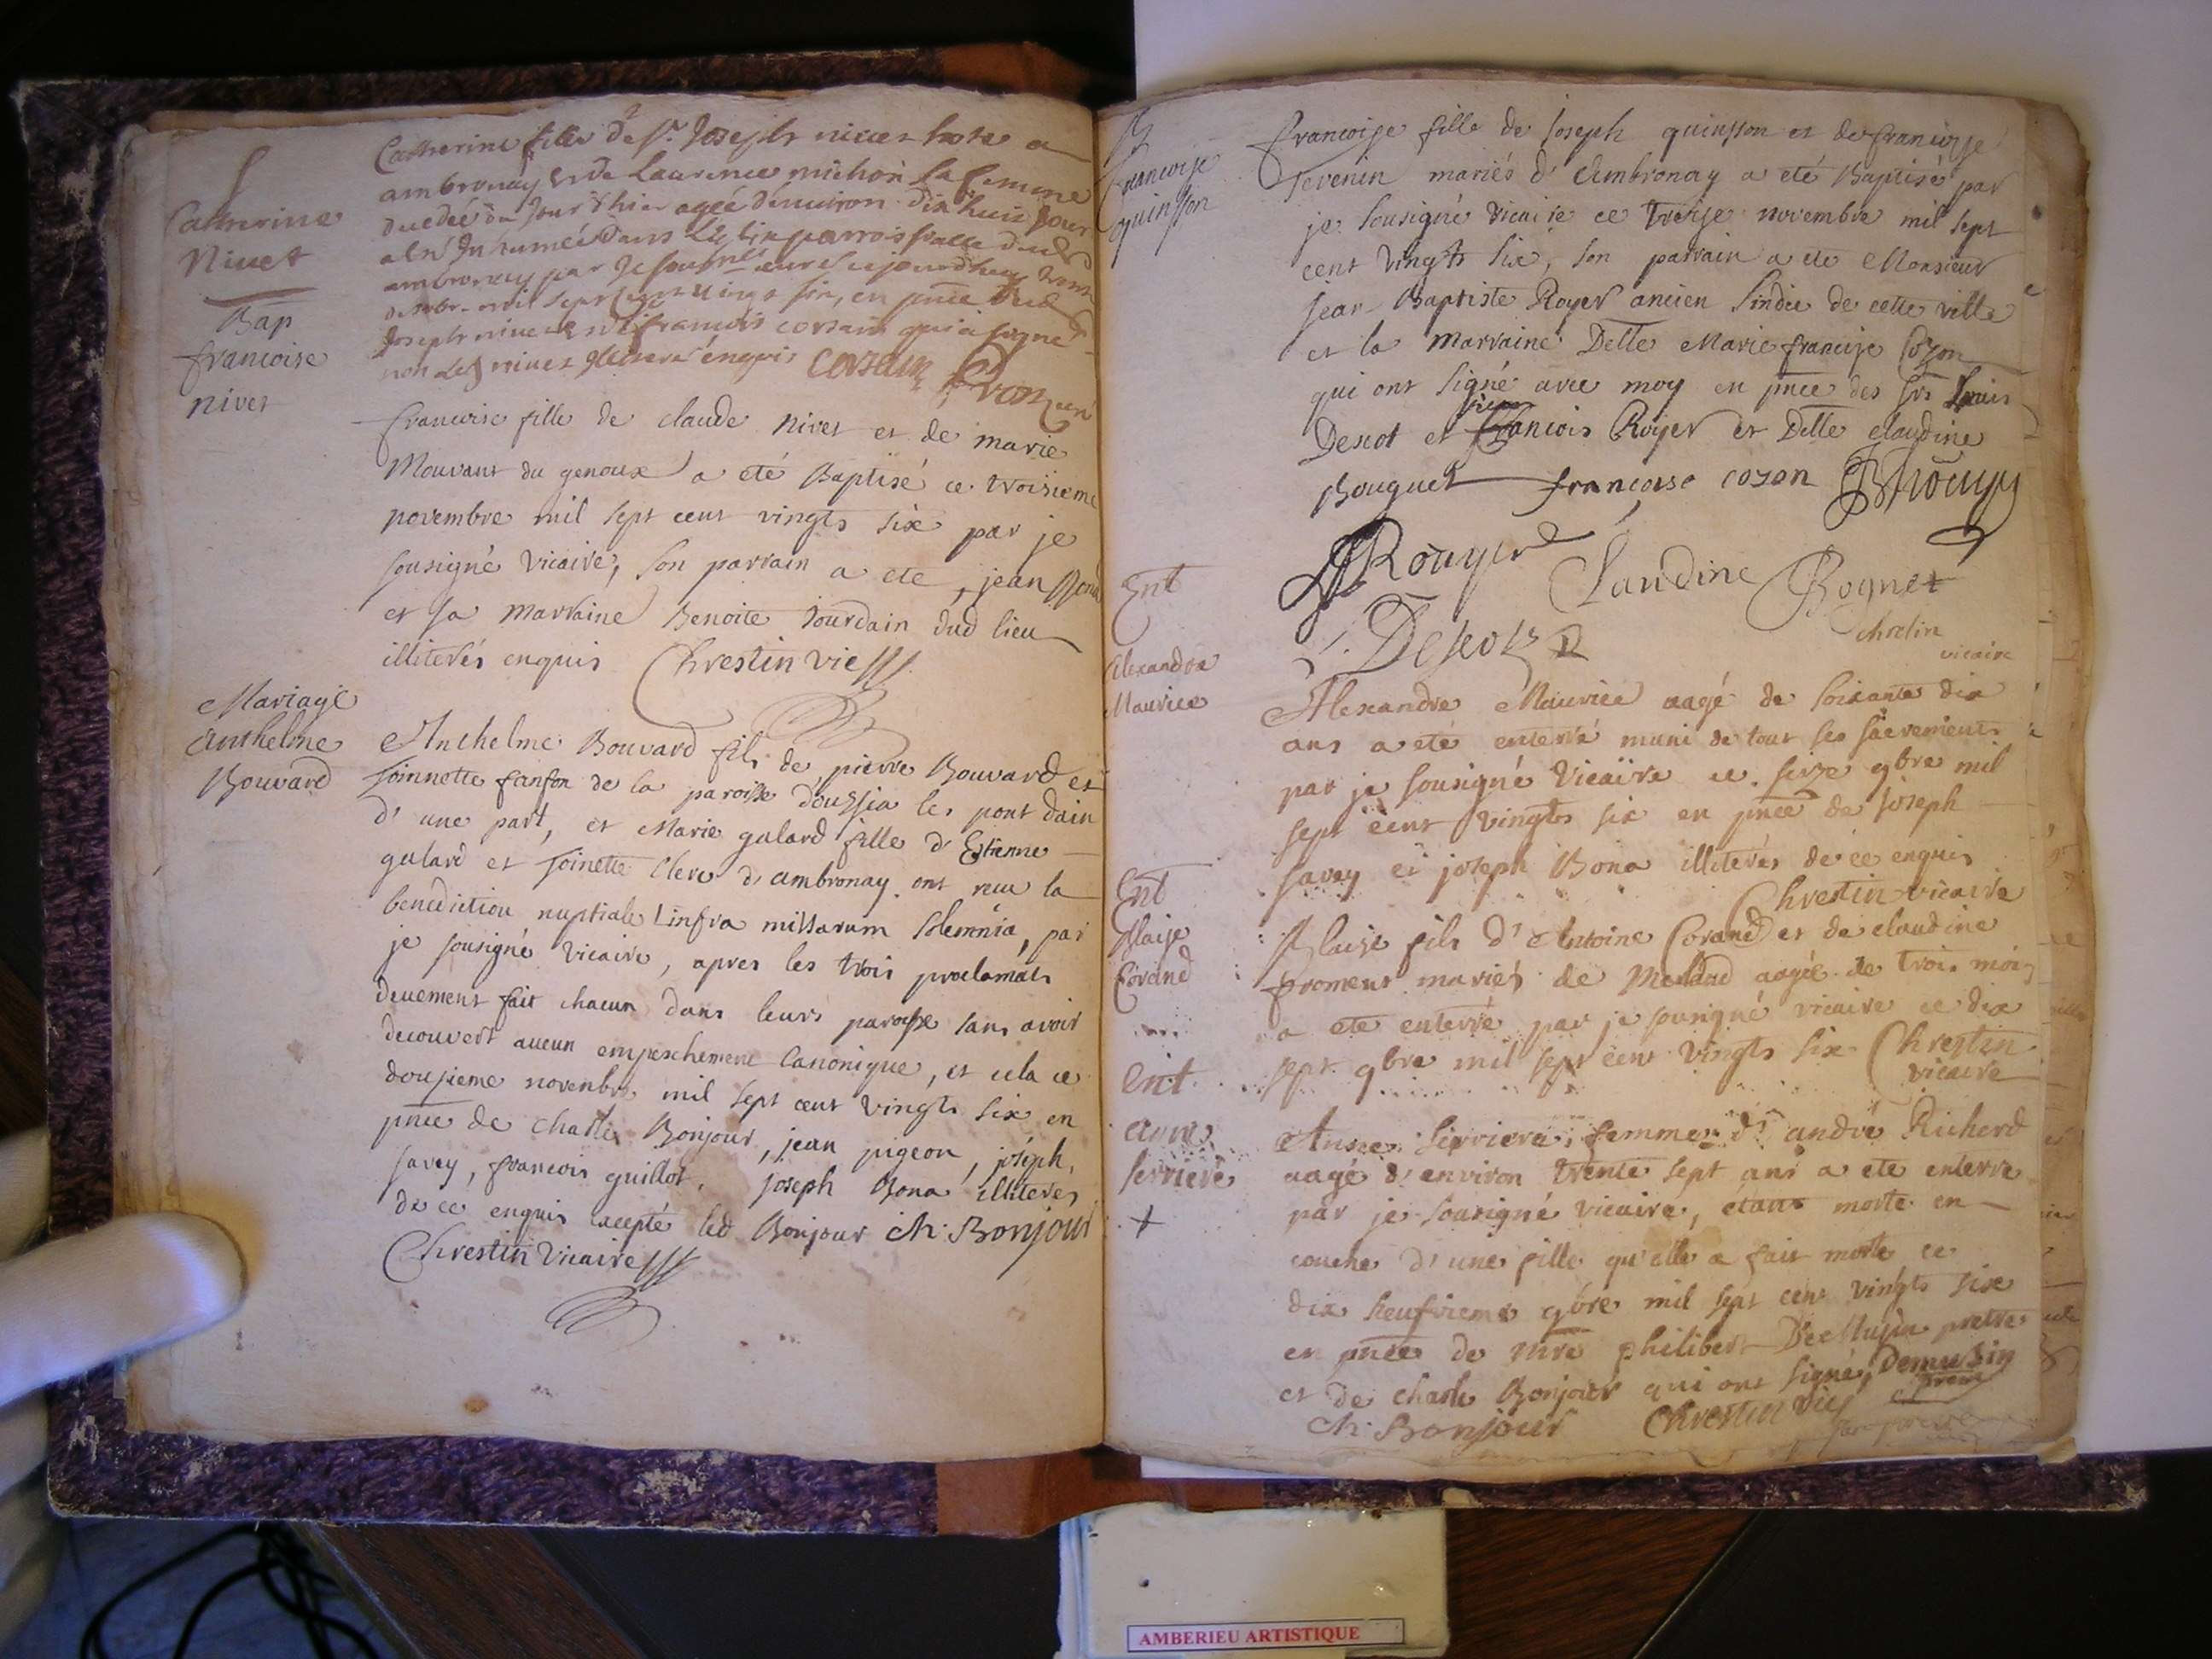 Catherine
Nivet
Catherine fille de Sr. Joseph nivet hoste a
ambronay & de Laurence michon sa femme
decedée du jour d'hier agée d'environ dix huit jours
a été Inhumée dans L'Eglise parroissialle dud
ambronay par Je soussné curé cejourdhuy
mil sept cent vingt six, en pnce dud
Joseph nivet & de françois corsain qui a signé
non led nivet illiteré enquis corsain
curé
Bap
francoise
nivet
francoise fille de claude nivet et de marie
Mouvant du genoux a eté Baptisé ce troisieme
novembre mil sept cent vingts six par je
sousigné vicaire, son parrain a ete, jean Bona
et sa marraine Benoite Jourdain dud lieu
illiterés enquis Chrestin vic
Mariage
Anthelme
Bouvard
Anthelme Bouvard fils de pierre Bouvard et
Toinnette fanfon de la paroisse doussia les pont dain
d'une part, et Marie galard fille d'Estienne
galard et Toinette Clerc d'ambronay ont reçu la
benediction nuptiale infra missarum solemnia, par
je sousigné vicaire, apres les trois proclamãts
deuement fait chacun dans leurs paroisse sans avoir
decouvert aucun empeschement Canonique, et cela ce
dousieme novembre mil sept cent vingts six en
pnce de charle Bonjour, jean pigeon, joseph
savey, francois guillot, Joseph Bona illiteres
de ce enquis excepté led Bonjour Ch. Bonjour
Chrestin Vicaire
B
francoise
quinsson
francoise fille de Joseph quinsson et de francoise
Tevenin mariés d'Ambronay a eté Baptisé par
je sousigné vicaire ce treize novembre mil sept
cent vingts six, son parrain a ete Monsieur
jean Baptiste Royer ancien sindic de cette ville
et la marraine Delle Marie francoise Cozon
qui ont signé avec moy en pnce des srs Louis
Descot et francois Royer et Delle claudine
Bouguet françoise cozon
Rouyer Claudine Bognet
Descots
chrestin
vicaire
Ent
Alexandre
Maurice
Alexandre Maurice aagé de soixante dix
ans a eté enterré muni de tout ses sacrements
par je sousigné Vicaire ce seize 9bre mil
sept cent vingts six en pnce de Joseph
savey et joseph Bona illiterés de ce enquis
Chrestin vicaire
Ent
Blaise
Corand
Blaise fils d'Antoine Corand et de claudine
froment mariés de Merland aagé de trois mois
a eté enterré par je sousigné vicaire ce dix
sept 9bre mil sept cent vingts six Chrestin
vicaire
Ent
anne
serriere
+
Anne serriere femme d'andré Richerd
aagé d'environ trente sept ans a ete enterre
par je sousigné vicaire, etant morte en
couche d'une fille qu'elle a fait morte ce
dix neufvieme 9bre mil sept cent vingts six
en pnce de mre philibert DeMusin pretre
et de charle Bonjour qui ont signé, Demusin
pretre
Ch. Bonjour Chrestin vic
AMBERIEU ARTISTIQUE